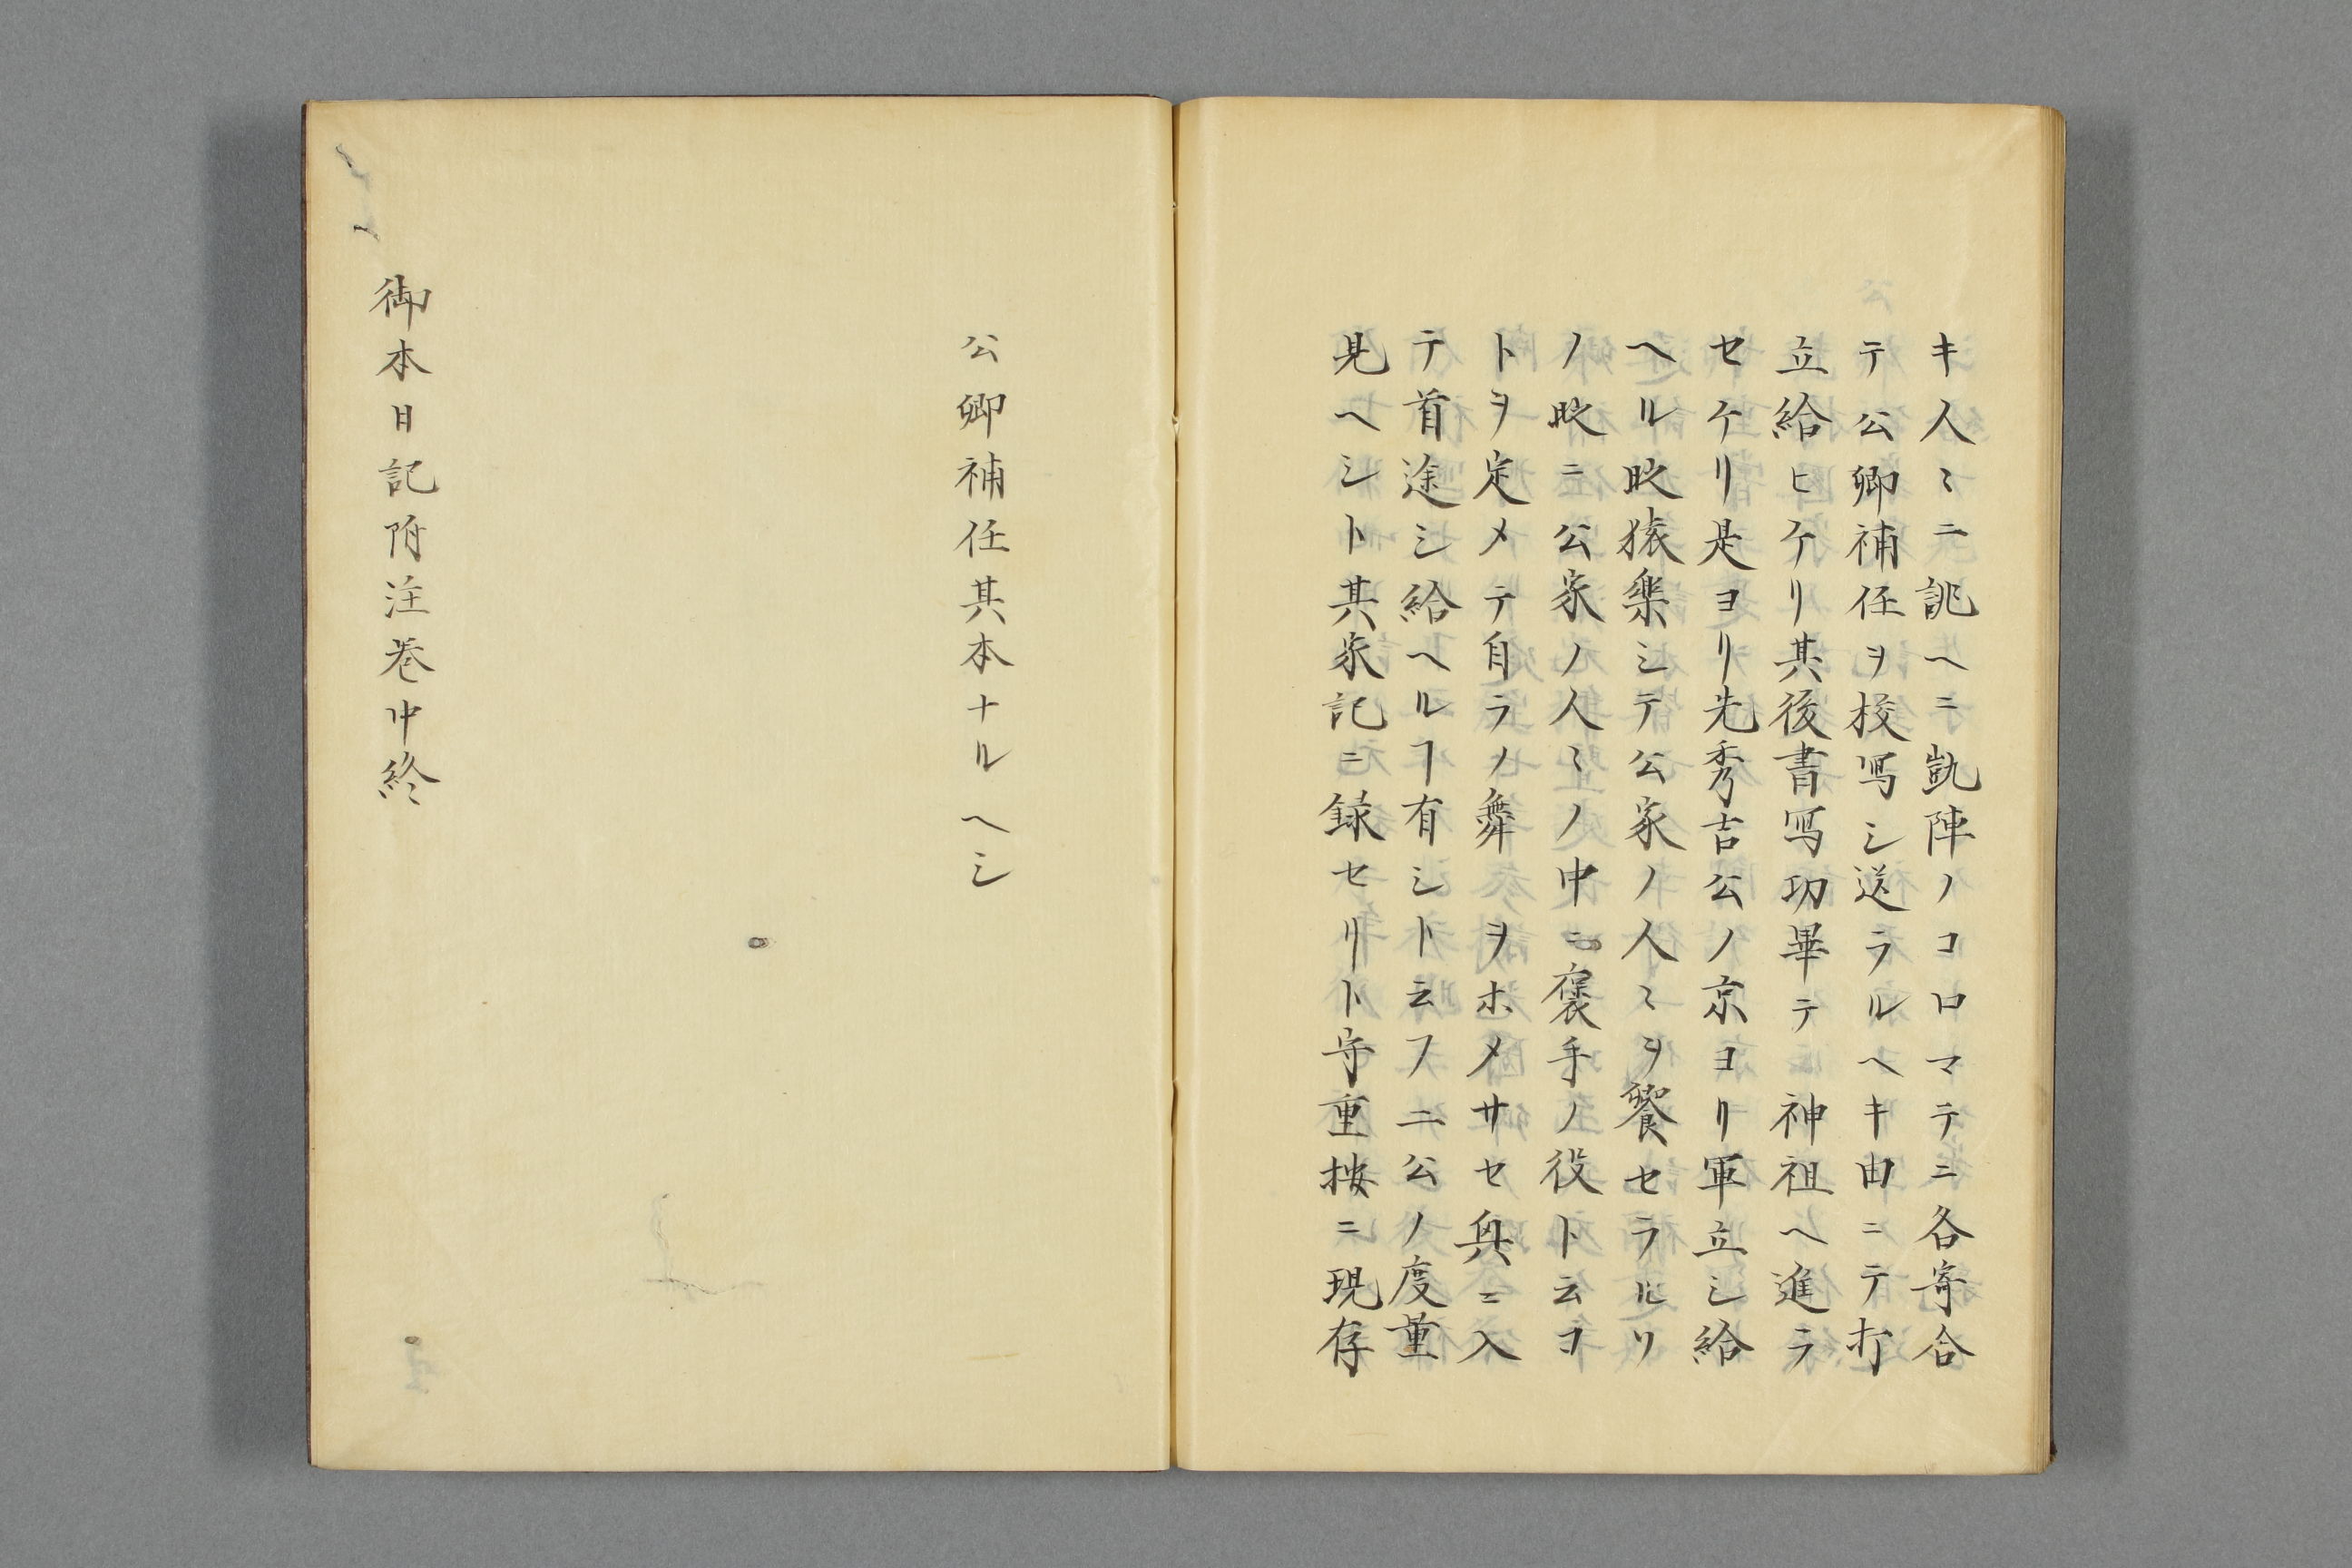 キ人〻ニ誂ヘニ凱陣ノコロマテニ各寄合
テ公卿補任ヲ挍写シ送ラルヘキ由ニテ打
立給ヒケリ其後書写功畢テ神祖ヘ進ラ
セケリ是ヨリ先秀吉公ノ京ヨリ軍立シ給
ヘル時猿楽シテ公家ノ人〻ヲ饗セラルリ
ノ時ニ公家ノ人〻ノ中ニ褒手ノ役ト云ヿ
トヲ定メテ自ラノ舞ヲホメサセ興ニ入
テ首途シ給ヘルヿ有シト云フ二公ノ度量
見ヘシト其家記ニ録セリト守重按ニ現存
公卿補任其本ナルヘシ
御本日記附注巻中終